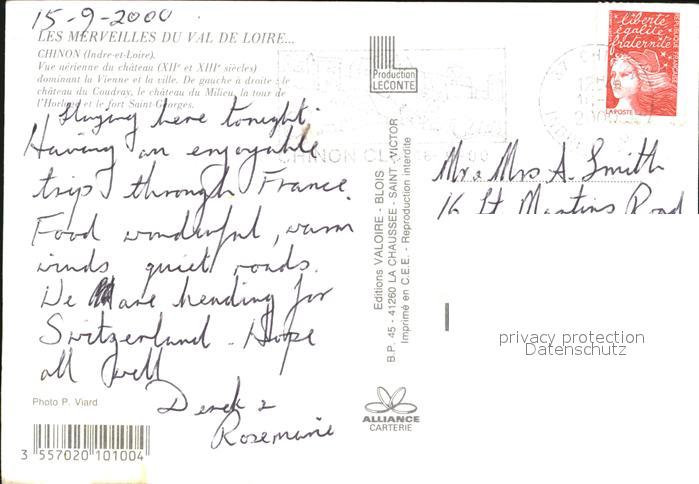 15-9-2000
LES MERVEILLES DU VAL DE LOIRE...
CHINON (Indre-et-Loire).
Vue aérienne du château (XIIe et XIIIe siècles)
dominant la Vienne et la ville. De gauche à droite : le
château du Coudray, le château du Milieu, la tour de
l'Horloge et le fort Saint-Georges.
Staying here tonight.
Having an enjoyable
trip through France.
Food wonderful, warm
winds quiet roads.
We are heading for
Switzerland. Hope
all well
Derek &
Rosemarie
Photo P. Viard
3 557020 101004
Production
LECONTE
Editions VALOIRE - BLOIS
B.P. 45 - 41260 LA CHAUSSEE - SAINT VICTOR
Imprimé en C.E.E. - Reproduction interdite
ALLIANCE
CARTERIE
liberté
égalité
fraternité
RÉPUBLIQUE FRANÇAISE
LA POSTE
CHINON
Mr & Mrs A. Smith
16 St Martins Road
privacy protection
Datenschutz